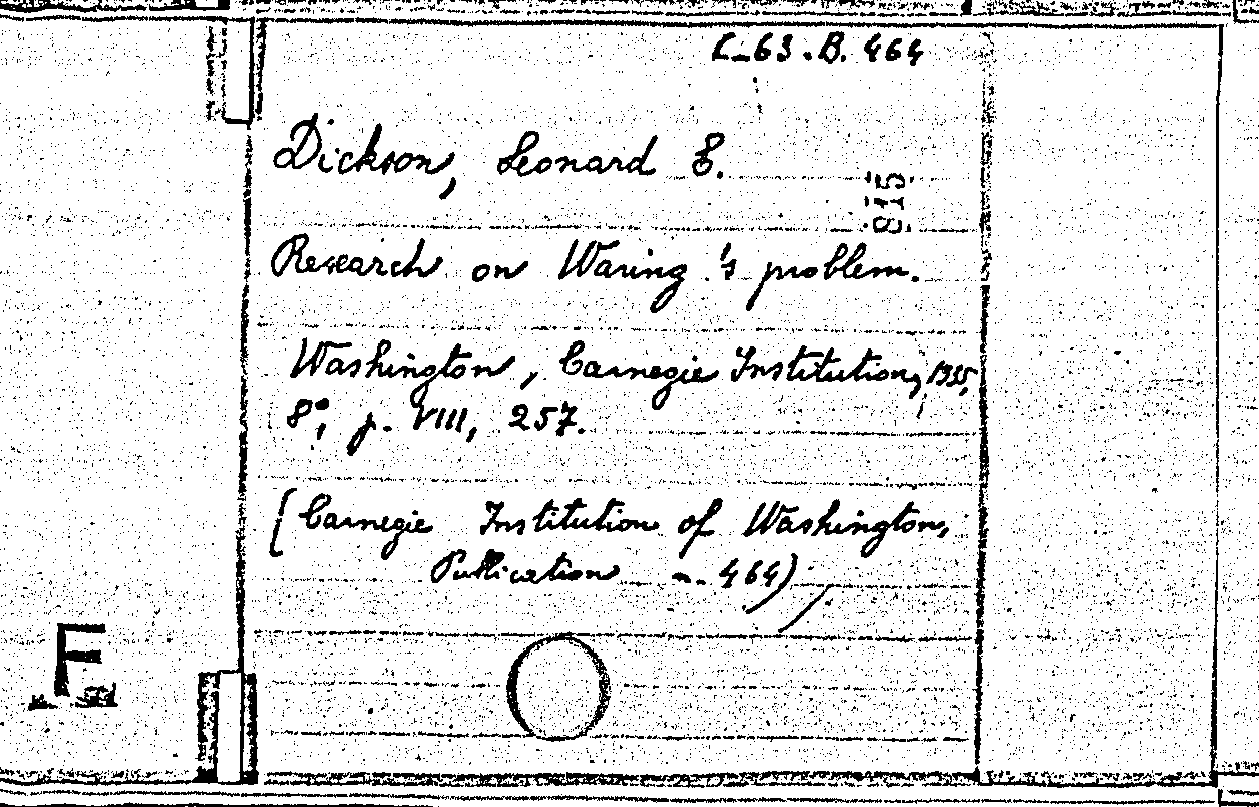 L-63.B.464
Dickson, Leonard E.
815
Research on Waring's problem.
Washington, Carnegie Institution, 1935,
8°, p. VIII, 257.
(Carnegie Institution of Washington,
Publication n. 464)
F